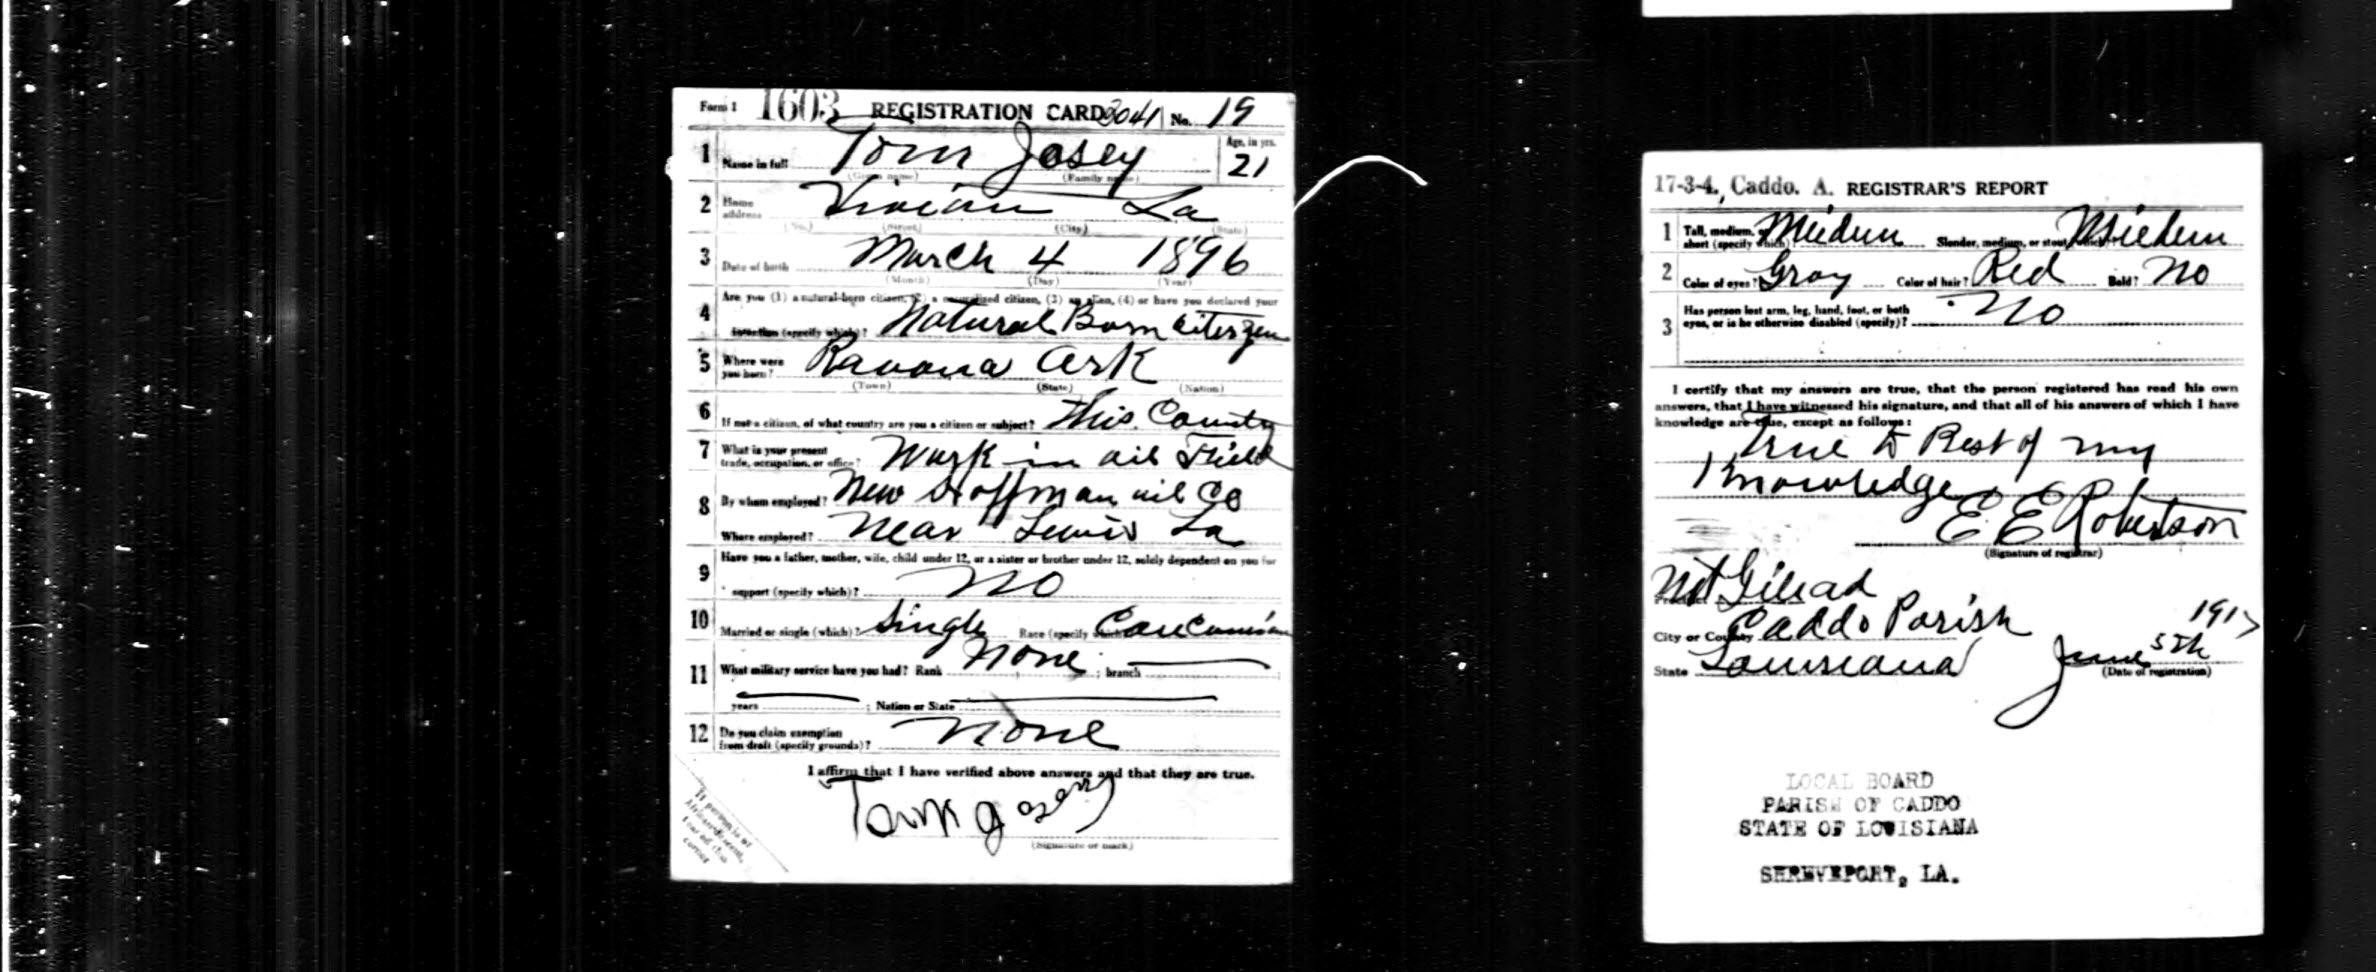 Form 1 1603 REGISTRATION CARD 3041 No. 19
1 Name in full Tom Josey Age, in yrs. 21
(Given name) (Family name)
2 Home address Vivian La
(No.) (Street) (City) (State)
3 Date of birth March 4 1896
(Month) (Day) (Year)
4 Are you (1) a natural-born citizen, (2) a naturalized citizen, (3) an alien, (4) or have you declared your
intention (specify which)? Natural Born citezen
5 Where were you born? Ravana Ark
(Town) (State) (Nation)
6 If not a citizen, of what country are you a citizen or subject? This County
7 What is your present trade, occupation, or office? Work in oil Field
8 By whom employed? New Hoffman oil Co
Where employed? Near Lewis La
9 Have you a father, mother, wife, child under 12, or a sister or brother under 12, solely dependent on you for
support (specify which)? No
10 Married or single (which)? Single Race (specify which)? Caucasian
11 What military service have you had? Rank None ; branch
years ; Nation or State
12 Do you claim exemption from draft (specify grounds)? None
I affirm that I have verified above answers and that they are true.
Tom Josey
(Signature or mark)
If person is of
African descent,
tear off this
corner
17-3-4., Caddo. A. REGISTRAR'S REPORT
1 Tall, medium, or short (specify which)? Meidum Slender, medium, or stout (which)? Miedum
2 Color of eyes? Gray Color of hair? Red Bald? No
3 Has person lost arm, leg, hand, foot, or both eyes, or is he otherwise disabled (specify)? No
I certify that my answers are true, that the person registered has read his own
answers, that I have witnessed his signature, and that all of his answers of which I have
knowledge are true, except as follows:
True to Best of my
Knowledge
E E Robertson
(Signature of registrar)
Precinct Mt Gilead
City or County Caddo Parish 1917
State Louisiana June 5th
(Date of registration)
LOCAL BOARD
PARISH OF CADDO
STATE OF LOUISIANA
SHREVEPORT, LA.